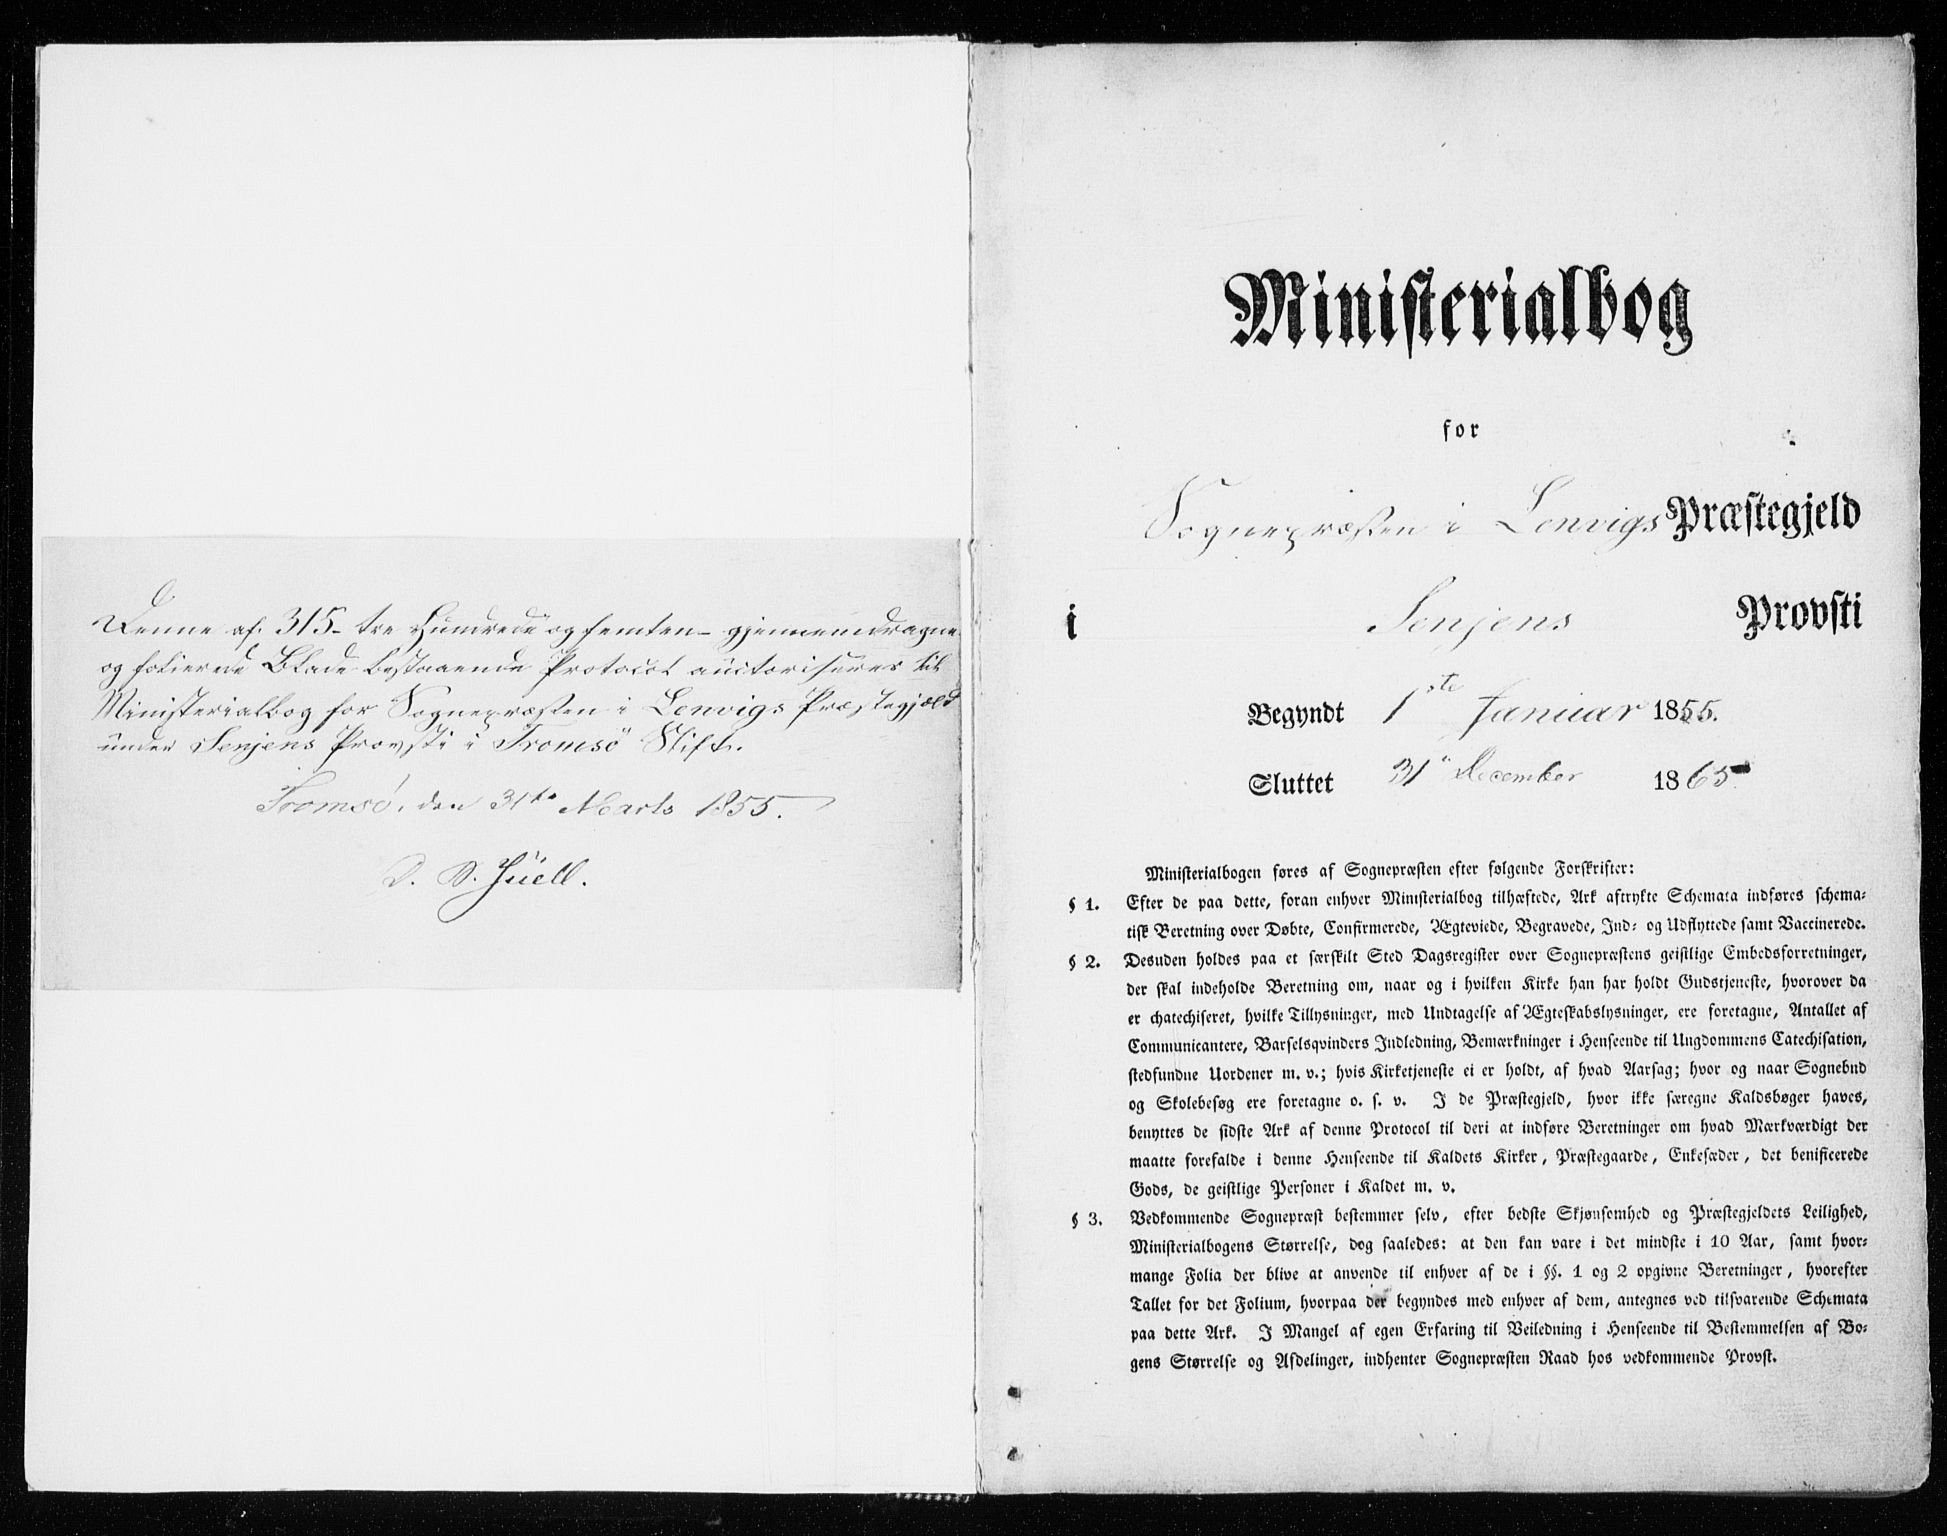 Denne af 315- tre Hundrede og femten- gjennemdragne
og folierede Blade bestaaende Protocol auctoriseres til
Ministerialbog for Sognepræsten i Lenvigs Præstegjæld
under Senjens Provsti i Tromsö Stift.
Tromsö, den 31te Marts 1855.
D. B. Juell.
Ministerialbog
for
Sognepræsten i Lenvigs Præstegjeld
i Senjens Provsti
Begyndt 1ste Januar 1855.
Sluttet 31te December 1865
Ministerialbogen føres af Sognepræsten efter følgende Forskrifter:
§ 1. Efter de paa dette, foran enhver Ministerialbog tilhæftede, Ark aftrykte Schemata indføres schema-
tisk Beretning over Døbte, Confirmerede, Ægteviede, Begravede, Ind- og Udflyttede samt Vaccinerede.
§ 2. Desuden holdes paa et særskilt Sted Dagsregister over Sognepræstens geistlige Embedsforretninger,
der skal indeholde Beretning om, naar og i hvilken Kirke han har holdt Gudstjeneste, hvorover da
er chatechiseret, hvilke Tillysninger, med Undtagelse af Ægteskabslysninger, ere foretagne, Antallet af
Communicantere, Barselqvinders Indledning, Bemærkninger i Henseende til Ungdommens Catechisation,
stedfundne Uordener m. v.; hvis Kirketjeneste ei er holdt, af hvad Aarsag; hvor og naar Sognebud
og Skolebesøg ere foretagne o. s. v. I de Præstegjeld, hvor ikke særegne Kaldsbøger haves,
benyttes de sidste Ark af denne Protocol til deri at indføre Beretninger om hvad Mærkværdigt der
maatte forefalde i denne Henseende til Kaldets Kirker, Præstegaarde, Enkesæder, det benificerede
Gods, de geistlige Personer i Kaldet m. v.
§ 3. Vedkommende Sognepræst bestemmer selv, efter bedste Skjønsomhed og Præstegjeldets Leilighed,
Ministerialbogens Størrelse, dog saaledes: at den kan vare i det mindste i 10 Aar, samt hvor-
mange Folia der blive at anvende til enhver af de i §§. 1 og 2 opgivne Beretninger, hvorefter
Tallet for det Folium, hvorpaa der begyndes med enhver af dem, antegnes ved tilsvarende Schemata
paa dette Ark. I Mangel af egen Erfaring til Veiledning i Henseende til Bestemmelsen af Bo-
gens Størrelse og Afdelinger, indhenter Sognepræsten Raad hos vedkommende Provst.